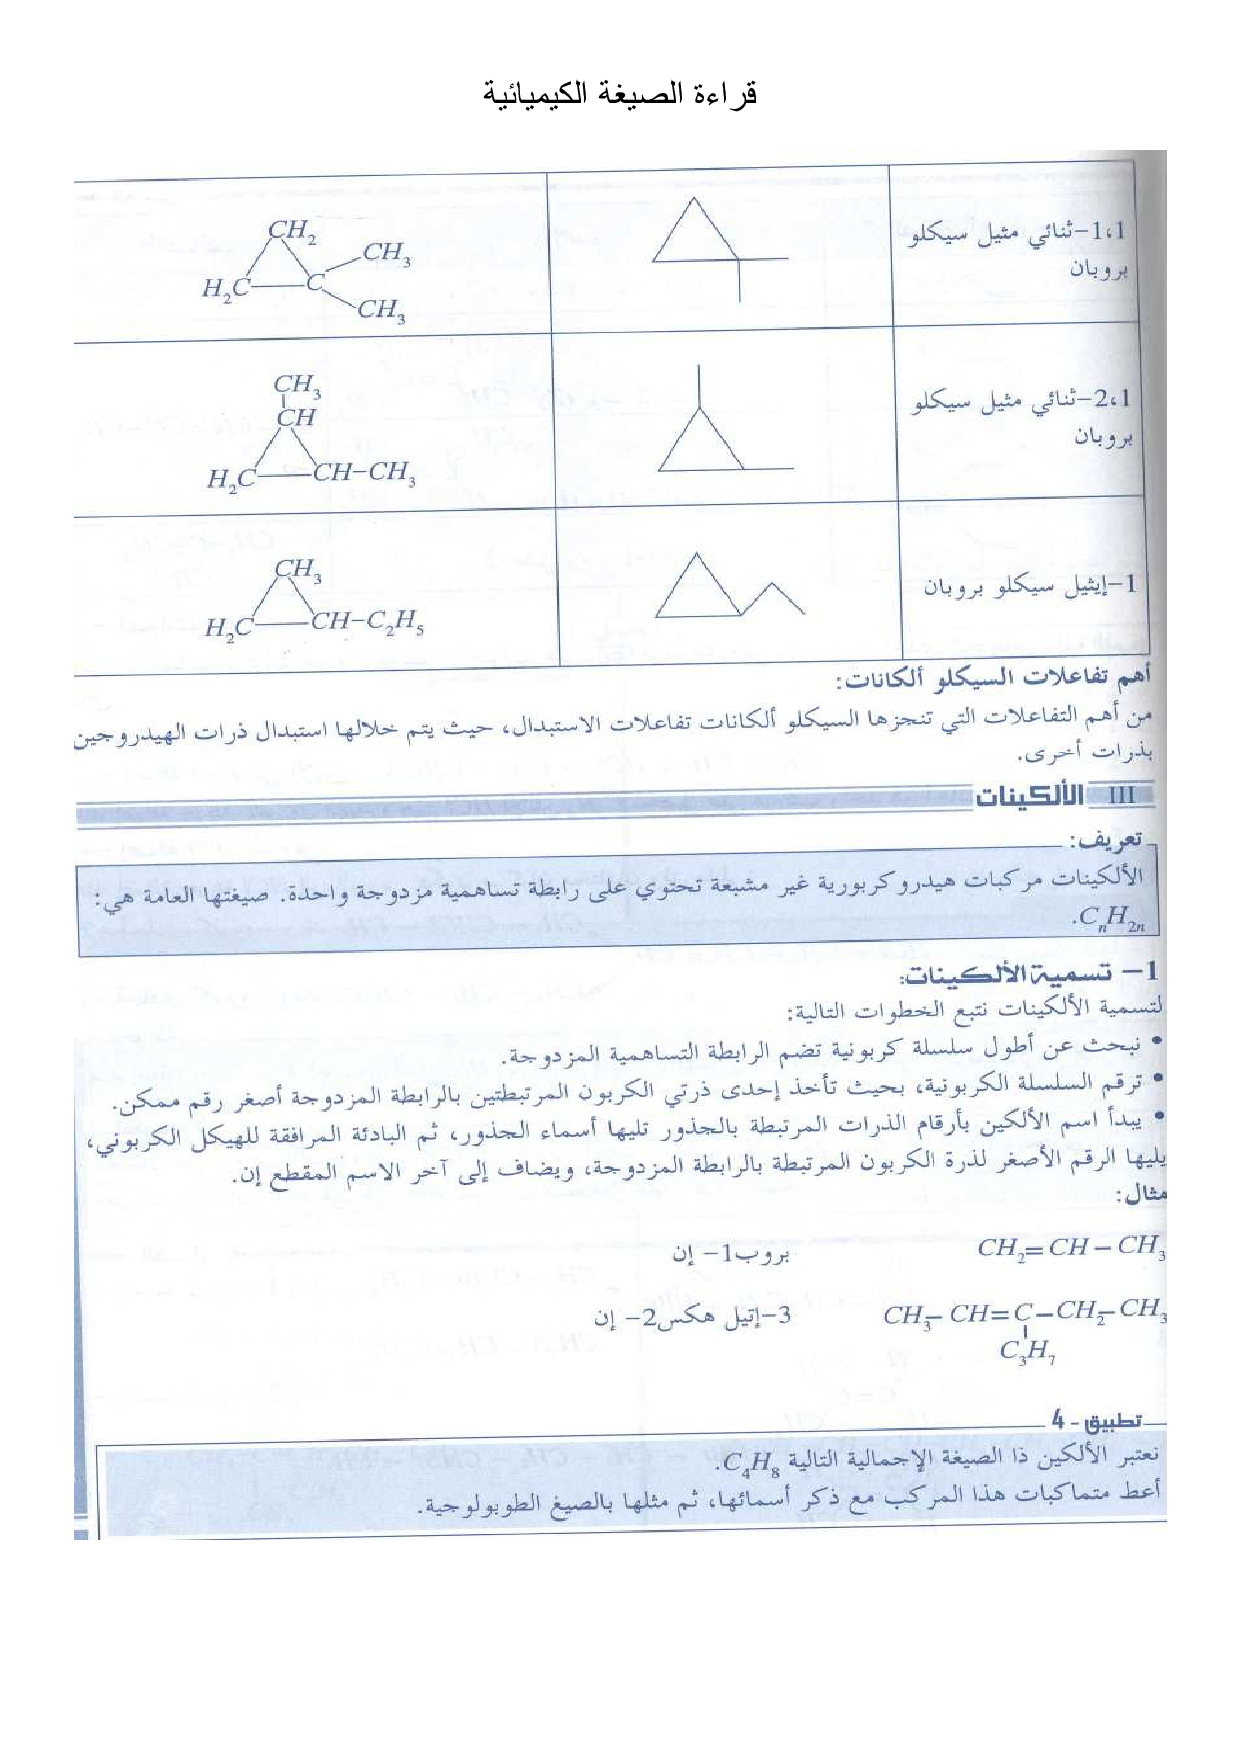 قراءة الصيغة الكيميائية
1،1-ثنائي مثيل سيكلو
بروبان
CH₂
CH₃
H₂C
C
CH₃
2،1-ثنائي مثيل سيكلو
بروبان
CH₃
CH
H₂C
CH-CH₃
1-إيثيل سيكلو بروبان
CH₃
H₂C
CH-C₂H₅
أهم تفاعلات السيكلو ألكانات:
من أهم التفاعلات التي تنجزها السيكلو ألكانات تفاعلات الاستبدال، حيث يتم خلالها استبدال ذرات الهيدروجين
بذرات أخرى.
III الألكينات
تعريف:
الألكينات مركبات هيدروكربورية غير مشبعة تحتوي على رابطة تساهمية مزدوجة واحدة. صيغتها العامة هي:
CₙH₂ₙ.
1- تسمية الألكينات:
لتسمية الألكينات نتبع الخطوات التالية:
• نبحث عن أطول سلسلة كربونية تضم الرابطة التساهمية المزدوجة.
• ترقم السلسلة الكربونية، بحيث تأخذ إحدى ذرتي الكربون المرتبطتين بالرابطة المزدوجة أصغر رقم ممكن.
• يبدأ اسم الألكين بأرقام الذرات المرتبطة بالجذور تليها أسماء الجذور، ثم البادئة المرافقة للهيكل الكربوني،
يليها الرقم الأصغر لذرة الكربون المرتبطة بالرابطة المزدوجة، ويضاف إلى آخر الاسم المقطع إن.
مثال:
CH₂=CH–CH₃ بروب1- إن
CH₃–CH=C–CH₂–CH₃ 3-إتيل هكس2- إن
C₃H₇
تطبيق - 4
نعتبر الألكين ذا الصيغة الإجمالية التالية C₄H₈.
أعط متماكبات هذا المركب مع ذكر أسمائها، ثم مثلها بالصيغ الطوبولوجية.